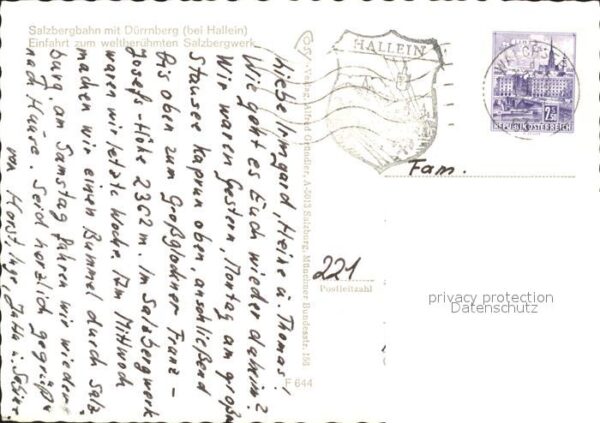 Salzbergbahn mit Dürrnberg (bei Hallein)
Einfahrt zum weltberühmten Salzbergwerk
HALLEIN
2 S
REPUBLIK ÖSTERREICH
Fam.
221
Postleitzahl
privacy protection
Datenschutz
F 644
A-5013 Salzburg, Münchner Bundesstr. 156
Liebe Irmgard, Heine u. Thomas!
Wie geht es Euch wieder daheim?
Wir waren Gestern, Montag am großen
Stausee Kaprun oben, anschließend
bis oben zum Großglockner Franz-
Josefs-Höhe 2362 m. Im Salzbergwerk
waren wir letzte Woche. Am Mittwoch
machen wir einen Bummel durch Salz-
burg, am Samstag fahren wir wieder
nach Hause. Seid herzlich gegrüßt
von Horst her, Jutta u.